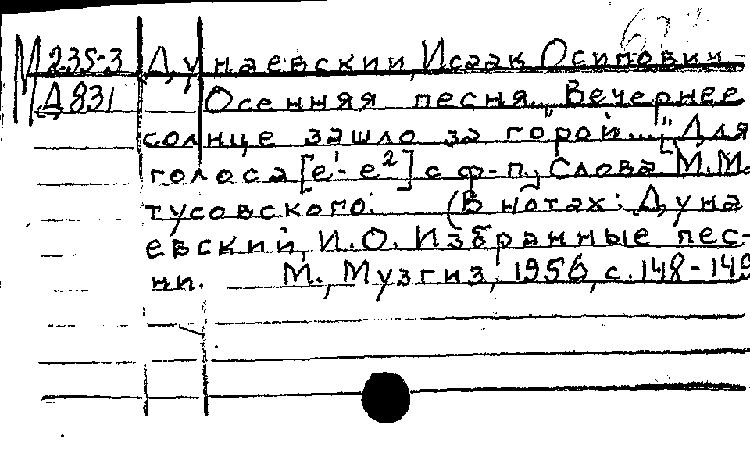 М 235-3 Дунаевский, Исаак Осипович
Д 831 Осенняя песня. "Вечернее
солнце зашло за горой..." Для
голоса [e¹-e²] с ф-п. Слова М.М.
тусовского. (В нотах: Дуна
евский, И.О. Избранные пес-
ни. М., Музгиз, 1956, с. 148-149